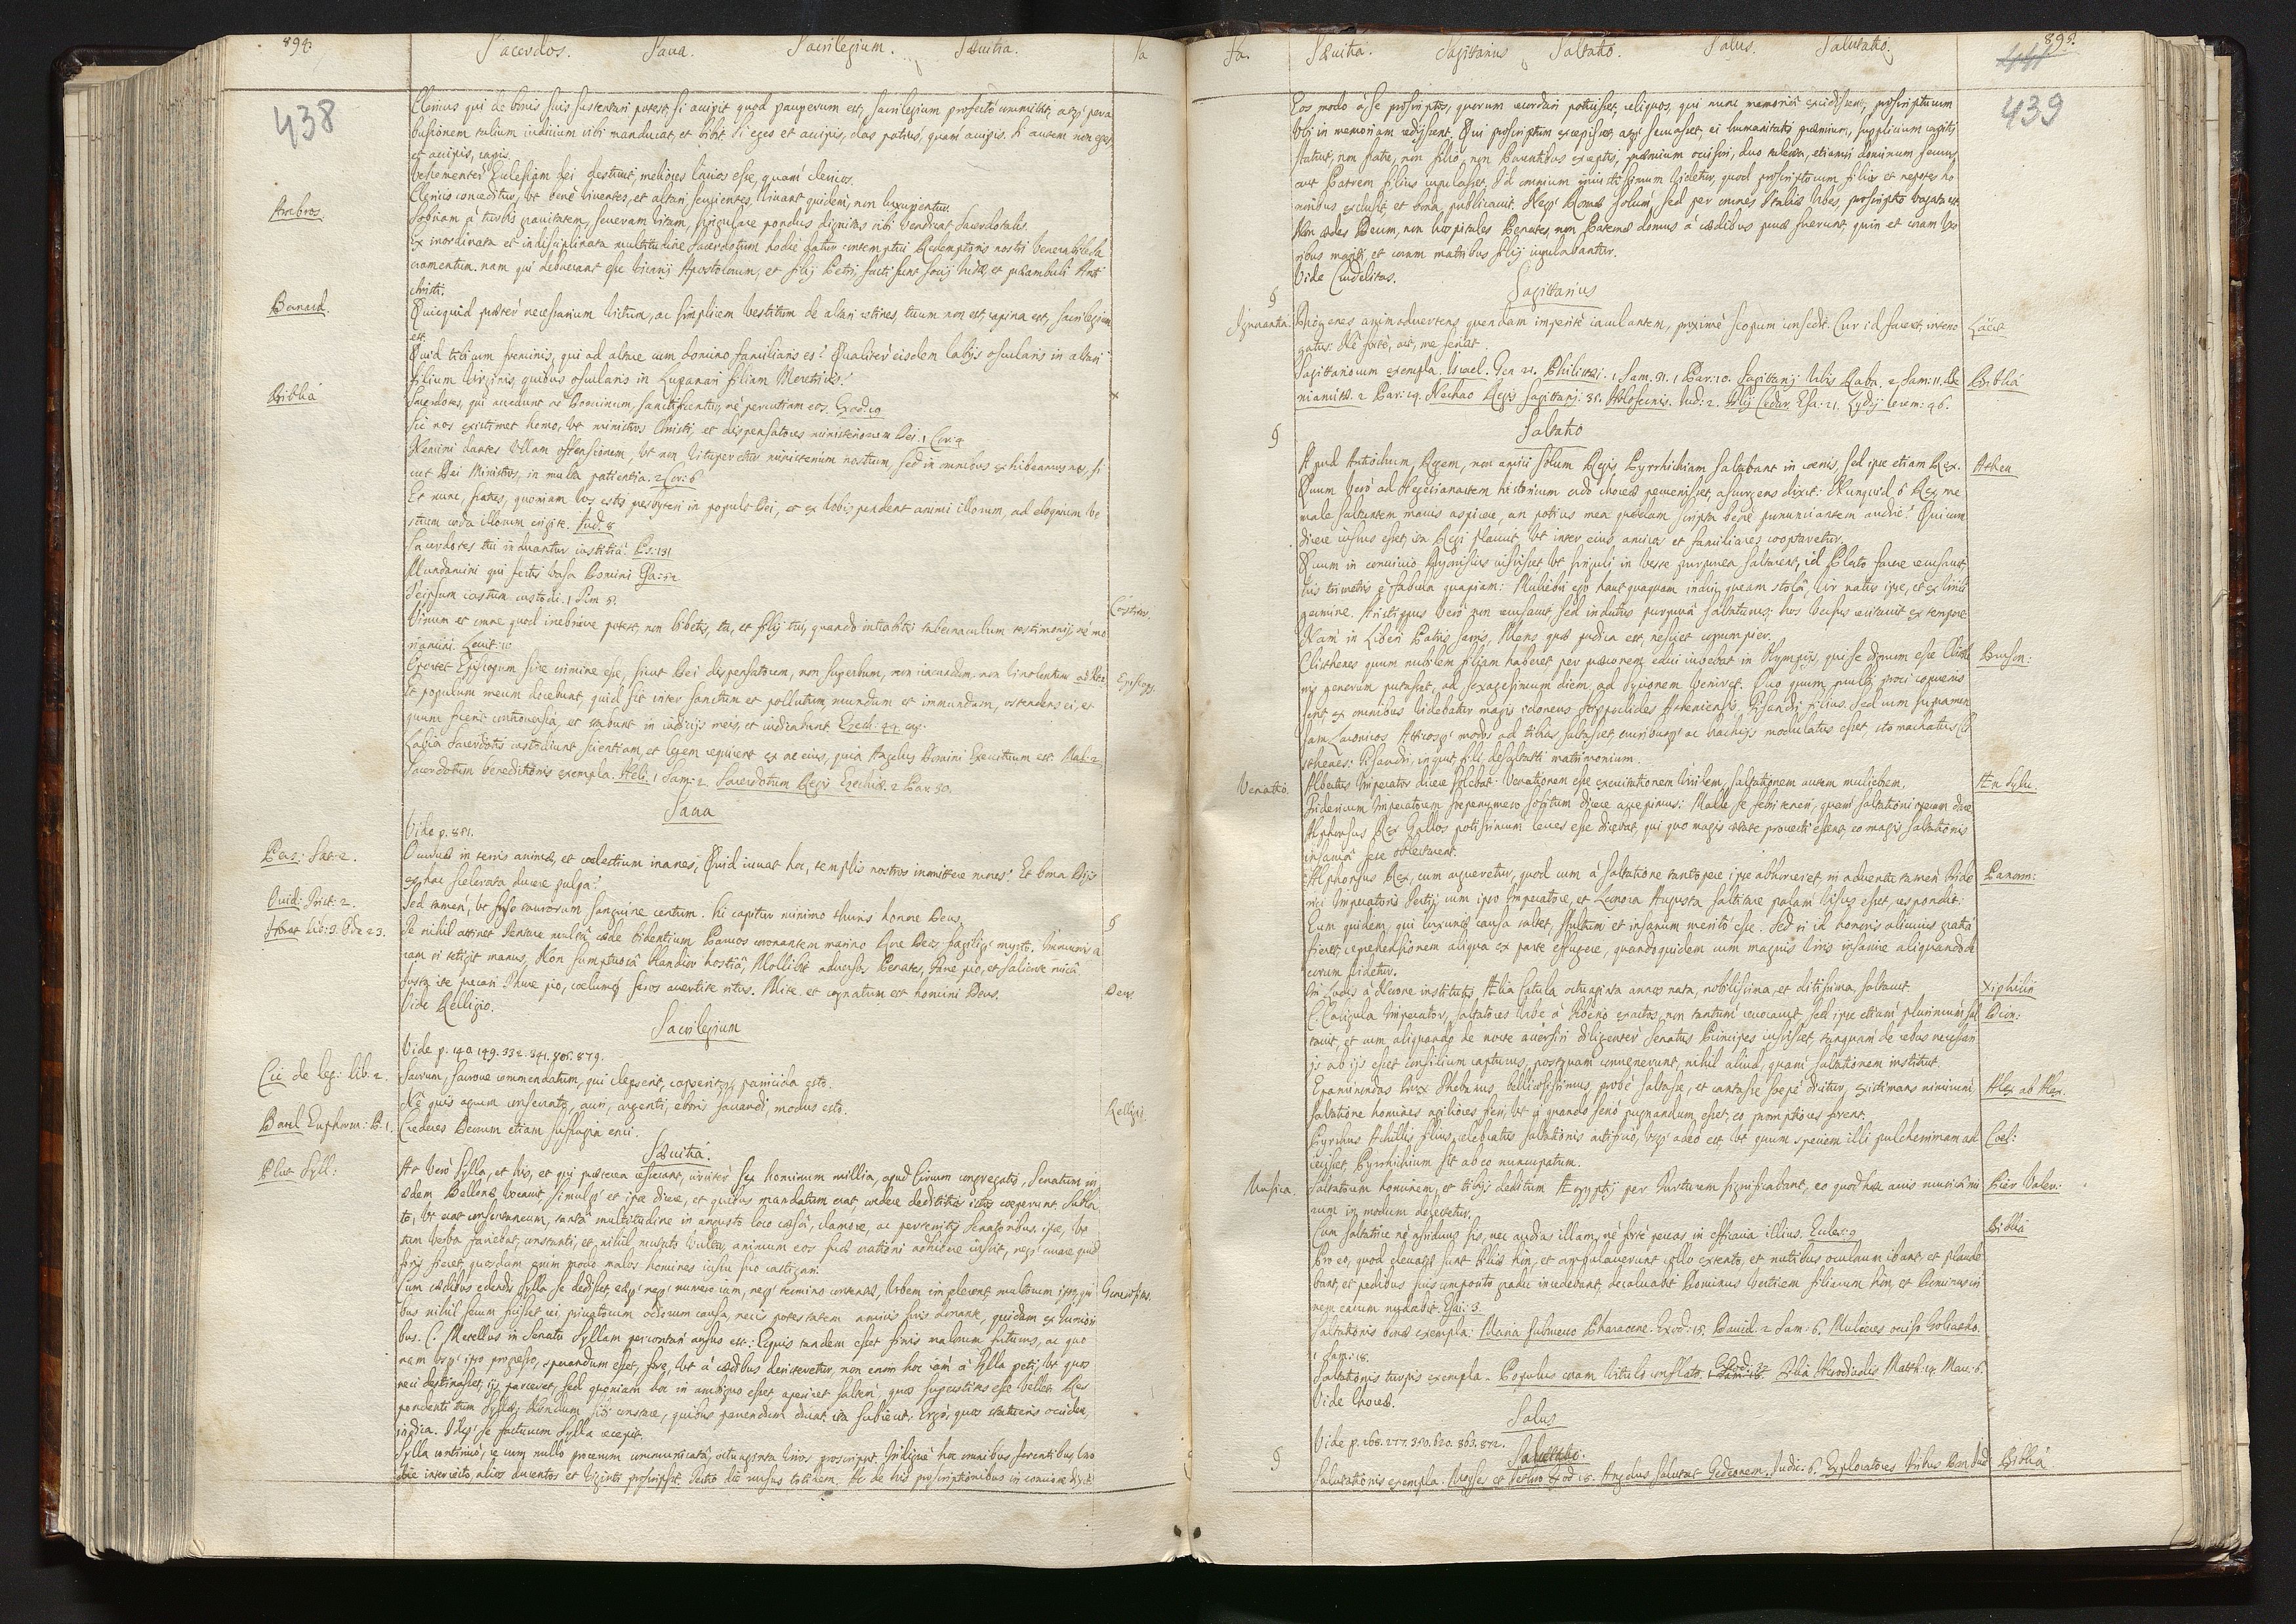 894.
Sacerdos. Sacra. Sacrilegium. Sæuitia. Sa
438
Clericus qui de bonis suis sustentari potest, si accipit quod pauperum est, sacrilegium profecto committit, atq
busionem talium iudicium sibi manducat, et bibit. Si eges et accipis, das potius, quam accipis. Si autem non eges
et accipis, rapis.
Vehementer Ecclesiam Dei destruit, meliores laicos esse, quam clericos.
Clerico conceditur, vt bene viuentes, et altari seruientes, viuant quidem, non luxurientur.
Ambros. Sobriam à turbis grauitatem, seueram vitam, singulare pondus dignitas sibi vendicat Sacerdotalis.
Ex inordinata et indisciplinata multitudine Sacerdotum hodie datur contemptui Redemptoris nostri venerabile sa
cramentum. nam qui debuerant esse vicarij Apostolorum, et filij Petri, facti sunt socij Iudæ, et præambuli Anti
christi.
Bernard. Quicquid præter necessarium victum, ac simplicem vestitum de altari retines, tuum non est, rapina est, sacrilegium
est.
Quid tibi cum fœminis, qui ad altare cum Domino familiaris es? Qualiter eisdem labijs oscularis in altari
filium Virginis, quibus oscularis in Lupanari filiam Meretricis?
Biblia Sacerdotes, qui accedunt ad Dominum, sanctificentur, ne percutiam eos. Exod: 19
Sic nos existimet homo, vt ministros Christi, et dispensatores ministeriorum Dei. 1 Cor: 4
Nemini dantes vllam offensionem, vt non vituperetur ministerium nostrum, sed in omnibus exhibeamus nos, si
cut Dei Ministros, in multa patientia. 2 Cor: 6
Et nunc, fratres, quoniam vos estis presbyteri in populo Dei, et ex vobis pendent animi illorum, ad eloquium ve
strum corda illorum erigite. Iud. 8
Sacerdotes tui induantur iustitia. Ps: 131
Mundamini qui fertis vasa Domini Esa: 52
Teipsum castum custodi. 1 Tim 5. Castitas.
Vinum et omne quod inebriare potest, non bibetis, tu, et filij tui, quando intrabitis tabernaculum testimonij, ne mo
riamini. Leuit: 10
Oportet Episcopum sine crimine esse, sicut Dei dispensatorem, non superbum, non iracundum, non vinolentum
Et populum meum docebunt, quid sit inter sanctum et pollutum, mundum et immundum, ostendens ei, et
quum fuerit controuersia, et stabunt in iudicijs meis, et iudicabunt. Ezech: 44
Labia Sacerdotis custodiunt scientiam, et legem requirent ex ore eius, quia Angelus Domini Exercituum est. Mal: 2
Sacerdotum benedictionis exempla. Heli. 1 Sam: 2. Sacerdotum Regis Ezechiæ. 2 Par: 30.
Sacra
Vide p. 881.
Pers: Sat: 2. O curuæ in terris animæ, et cœlestium inanes, Quid iuuat hoc, templis nostros immittere mores? Et bona Dijs
ex hac scelerata ducere pulpa?
Ouid: Trist: 2. Sed tamen, vt fuso taurorum sanguine centum. Sic capitur minimo thuris honore Deus. §
Horat: lib: 3. Ode 23. Te nihil attinet Tentare multa cæde bidentium Paruos coronantem marino Rore Deos fragiliq myrto. Immunis a
ram si tetigit manus, Non sumptuosa blandior hostia, Mollibit aduersos Penates, Farre pio, et saliente mica.
cœlumq Mite et cognatum est homini Deus. Deus
Vide Relligio.
Sacrilegium
Vide p. 140. 149. 332. 341. 806. 879.
Cic de leg: lib. 2. Sacrum, sacroue commendatum, qui clepserit, rapseritq, parricida esto.
Ne quis agrum consecrato, auri, argenti, eboris sacrandi, modus esto.
Barcl Euphorm: P. 1. Crederes Deorum etiam suffragia emi. Religio
Sæuitia.
Plut Syll: At vero Sylla, et hos, et qui præterea restiterunt, circiter sex hominum millia, apud Circum congregatis, Senatum in
ædem Bellonæ vocauit, simulq et ipse dicere, et quibus mandatum erat, cædere deditities illos cœperunt. Subla
to, vt erat consentaneum, tanta multitudine in angusto loco cæsa, clamore, ac perterritis Senatoribus, ipse, vt
tum verba faciebat, constanti, et nihil mutato vultu, animum eos suæ orationi adhibere iussit, neq curare quid
foris fieret, quosdam enim modo malos homines iussu suo castigari.
Cum cædibus edendis Sylla se dedisset, essetq neq numero iam, neq termino contentus, Vrbem impleret multorum ipsoq, qui Generositas.
bus nihil secum fuisset rei priuatorum odiorum causa, necis potestatem amicis suis donante, quidam ex Iuniori
bus. C. Metellus in Senatu Syllam percontari ausus est: Equis tandem esset finis malorum futurus, ac quo
nam vsq ipso progresso, sperandum esset, fore, vt à cædibus desisteretur, non enim hoc iam à Sylla peti, vt quos
neci destinasset, ijs parceret, sed quoniam hoc in ambiguo esset aperiret saltem, quos superstites esse vellet. Res
pondenti tum Syllæ, Nondum sibi constare, quibus parcendum ducat, ita subiecit: Ergo, quos statueris occidere,
indica. Idq se facturum Sylla recepit.
Sylla continuò, re cum nullo procerum communicata, octuaginta viros proscripsit. Indigne hoc omnibus ferentibus, vno
die interiecto, alios ducentos et viginti proscripsit. Tertio die rursus totidem. Ac de his proscriptionibus in concione dixit
Sa. Sæuitia. Sagittarius Saltatio. Salus. Salutatio. 895.
439
Eos modo à se proscriptos, quorum recordari potuisset, reliquos, qui nunc memoria excidissent, proscripturum
vbi in memoriam redijssent. Qui proscriptum excepisset, atq seruasset, ei humanitatis præmium, supplicium capitis
statuit, non fratre, non filio, non Parentibus exceptis, præmium occisori, duo talenta, etiamsi dominum seruus,
aut Patrem filius iugulasset. Id omnium iniustissimum videtur, quod proscriptorum filios et nepotes ho
noribus exclusit, et bona publicauit. Neq Romæ solum, sed per omnes Italiæ vrbes, proscriptio vagata est.
Non ædes Deum, non hospitales Penates, non Paternæ domus à cædibus puræ fuerunt, quin et coram vxo
ribus mariti, et coram matribus filij iugulabantur.
Vide Crudelitas.
§ Sagittarius
Ignorantia. Diogenes animaduertens quendam imperite iaculantem, proxime scopum consedit. Cur id faceret, interro Laërt
gatus: Ne forte, ait, me feriat.
Sagittariorum exempla. Ismael. Gen 21. Philistæi. 1 Sam. 31. 1 Par: 10. Sagittarij Vrbis Raba. 2 Sam: 11. Be Biblia
niamitæ. 2 Par: 14. Nechao Regis Sagittarij. 35. Holofernis. Iud: 2. Filij Cedar. Esa: 21. Lydij Ierem: 46.
§ Saltatio
Apud Antiochum Regem, non amici solum Regis Pyrrhichiam saltabant in cœnis, sed ipse etiam Rex. Athen
Quum verò ad Hegesianactem historicum ordo choreæ peruenisset, assurgens dixit: Nunquid ô Rex me
male saltantem mauis aspicere, an potius mea quædam scripta bene pronunciantem audire? Qui cum
dicere iussus esset, ita Regi placuit, vt inter eius amicos et familiares cooptaretur.
Quum in conuiuio Dyonisius iussisset, vt singuli in veste purpurea saltarent, id Plato facere recusauit,
his trimetris è fabula quapiam: Muliebri ego haut quaquam indui queam stola, Vir natus ipse, et ex virili
germine. Aristippus verò non recusauit, sed indutus purpura saltaturus, hos versus recitauit ex tempore:
Nam in Liberi Patris sacris, Mens quæ pudica est, nesciet corrumpier.
Clisthenes quum nubilem filiam haberet per præconem, edici iubebat in Olympijs, qui se dignum esse Clisthe Bruson:
nis generum putasset, ad sexagesimum diem, ad Sycionem veniret. Quo quum multi proci conuenis
sent ex omnibus videbatur magis idoneus Hippoclides Atheniensis, Tisandri filius. Sed cum
sam Laconicos Atticosq modos ad tibias saltasset cruribusq ac brachijs modulatus esset, stomachatus Cli
sthenes: Tisandri, inquit, fili, desaltasti matrimonium.
Venatio. Albertus Imperator dicere solebat: Venationem esse exercitationem virilem, saltationem autem muliebrem. Æn Sylu.
Fridericum Imperatorem sæpenumero solitum dicere accepimus: Malle se febri teneri, quam saltationi operam dare
Alphonsus Rex Gallos potissimum leues esse dicebat, qui quo magis ætate prouecti essent, eo magis saltationis
insania sese oblectarent.
Alphonsus Rex, cum argueretur, quod cum à saltatione tantopere ipse abhorreret, in aduentu tamen Fride Panorm:
rici Imperatoris Tertij, cum ipso Imperatore, et Leonora Augusta saltitare palam visus esset, respondit:
Eum quidem, qui luxuriæ causa saltet, stultum et insanum merito esse. Sed si id honoris alicuius gratia
fieret, reprehensionem aliqua ex parte effugere, quandoquidem cum magnis viris insanire aliquando de
corum videtur.
In Ludis à Nerone institutis Ælia Catula octuaginta annos nata, nobilissima, et ditissima, saltauit Xiphilin
C. Caligula Imperator, saltatores Vrbe à exactos, non tantum reuocauit, sed ipse etiam plurimum sal Dion:
tauit, et cum aliquando de nocte accersiri diligenter Senatus Principes iussisset, tanquam de rebus necessari
js ab ijs esset consilium capturus, postquam conuenerunt, nihil aliud, quam saltationem instituit.
Epaminondas Dux Thebanus, bellicosissimus, probe saltasse, et cantasse sæpe dicitur, existimans nimirum Alex ab Alex.
saltatione homines agiliores fieri, vt si quando serio pugnandum esset, eo promptiores forent.
Pyrrhus Achillis filius, celebratus saltationis artificio, vsq adeo est, vt quum speciem illi pulcherrimam ad Coel:
iecisset Pyrrhichium sit ab eo nuncupatum.
Musica. Saltatorem hominem, et tibijs deditum Ægyptij per Turturem significabant, eo quod hæc auis musica mi Pier Valer:
rum in modum delectetur.
Cum saltatrice ne assiduus sis, nec audias illam, ne forte pereas in efficacia illius. Eccles: 9 Biblia
Pro eo, quod eleuatæ sunt filiæ Sion, et ambulauerunt collo extento, et nutibus oculorum ibant, et plaude
bant, et pedibus suis composito gradu incedebant, decaluabit Dominus verticem filiarum Sion, et Dominus cri
nem earum nudabit. Esai: 3.
Saltationis bonæ exempla: Maria submerso Pharaone. Exod: 15. Dauid. 2 Sam: 6. Mulieres occiso Goliatho.
1 Sam: 18.
Saltationis turpis exempla. Populus coram Vitulo conflato. Exod: 32 Filia Herodiadis Matth: 14. Marc: 6.
Vide Choreæ.
Salus
Vide p. 268. 277. 350. 620. 863. 872.
§ Salutatio.
Salutationis exempla. Moyses et Iethro Exod 18. Angelus salutat Gedeonem. Iudic: 6. Exploratores Tribus Dan Iud Biblia